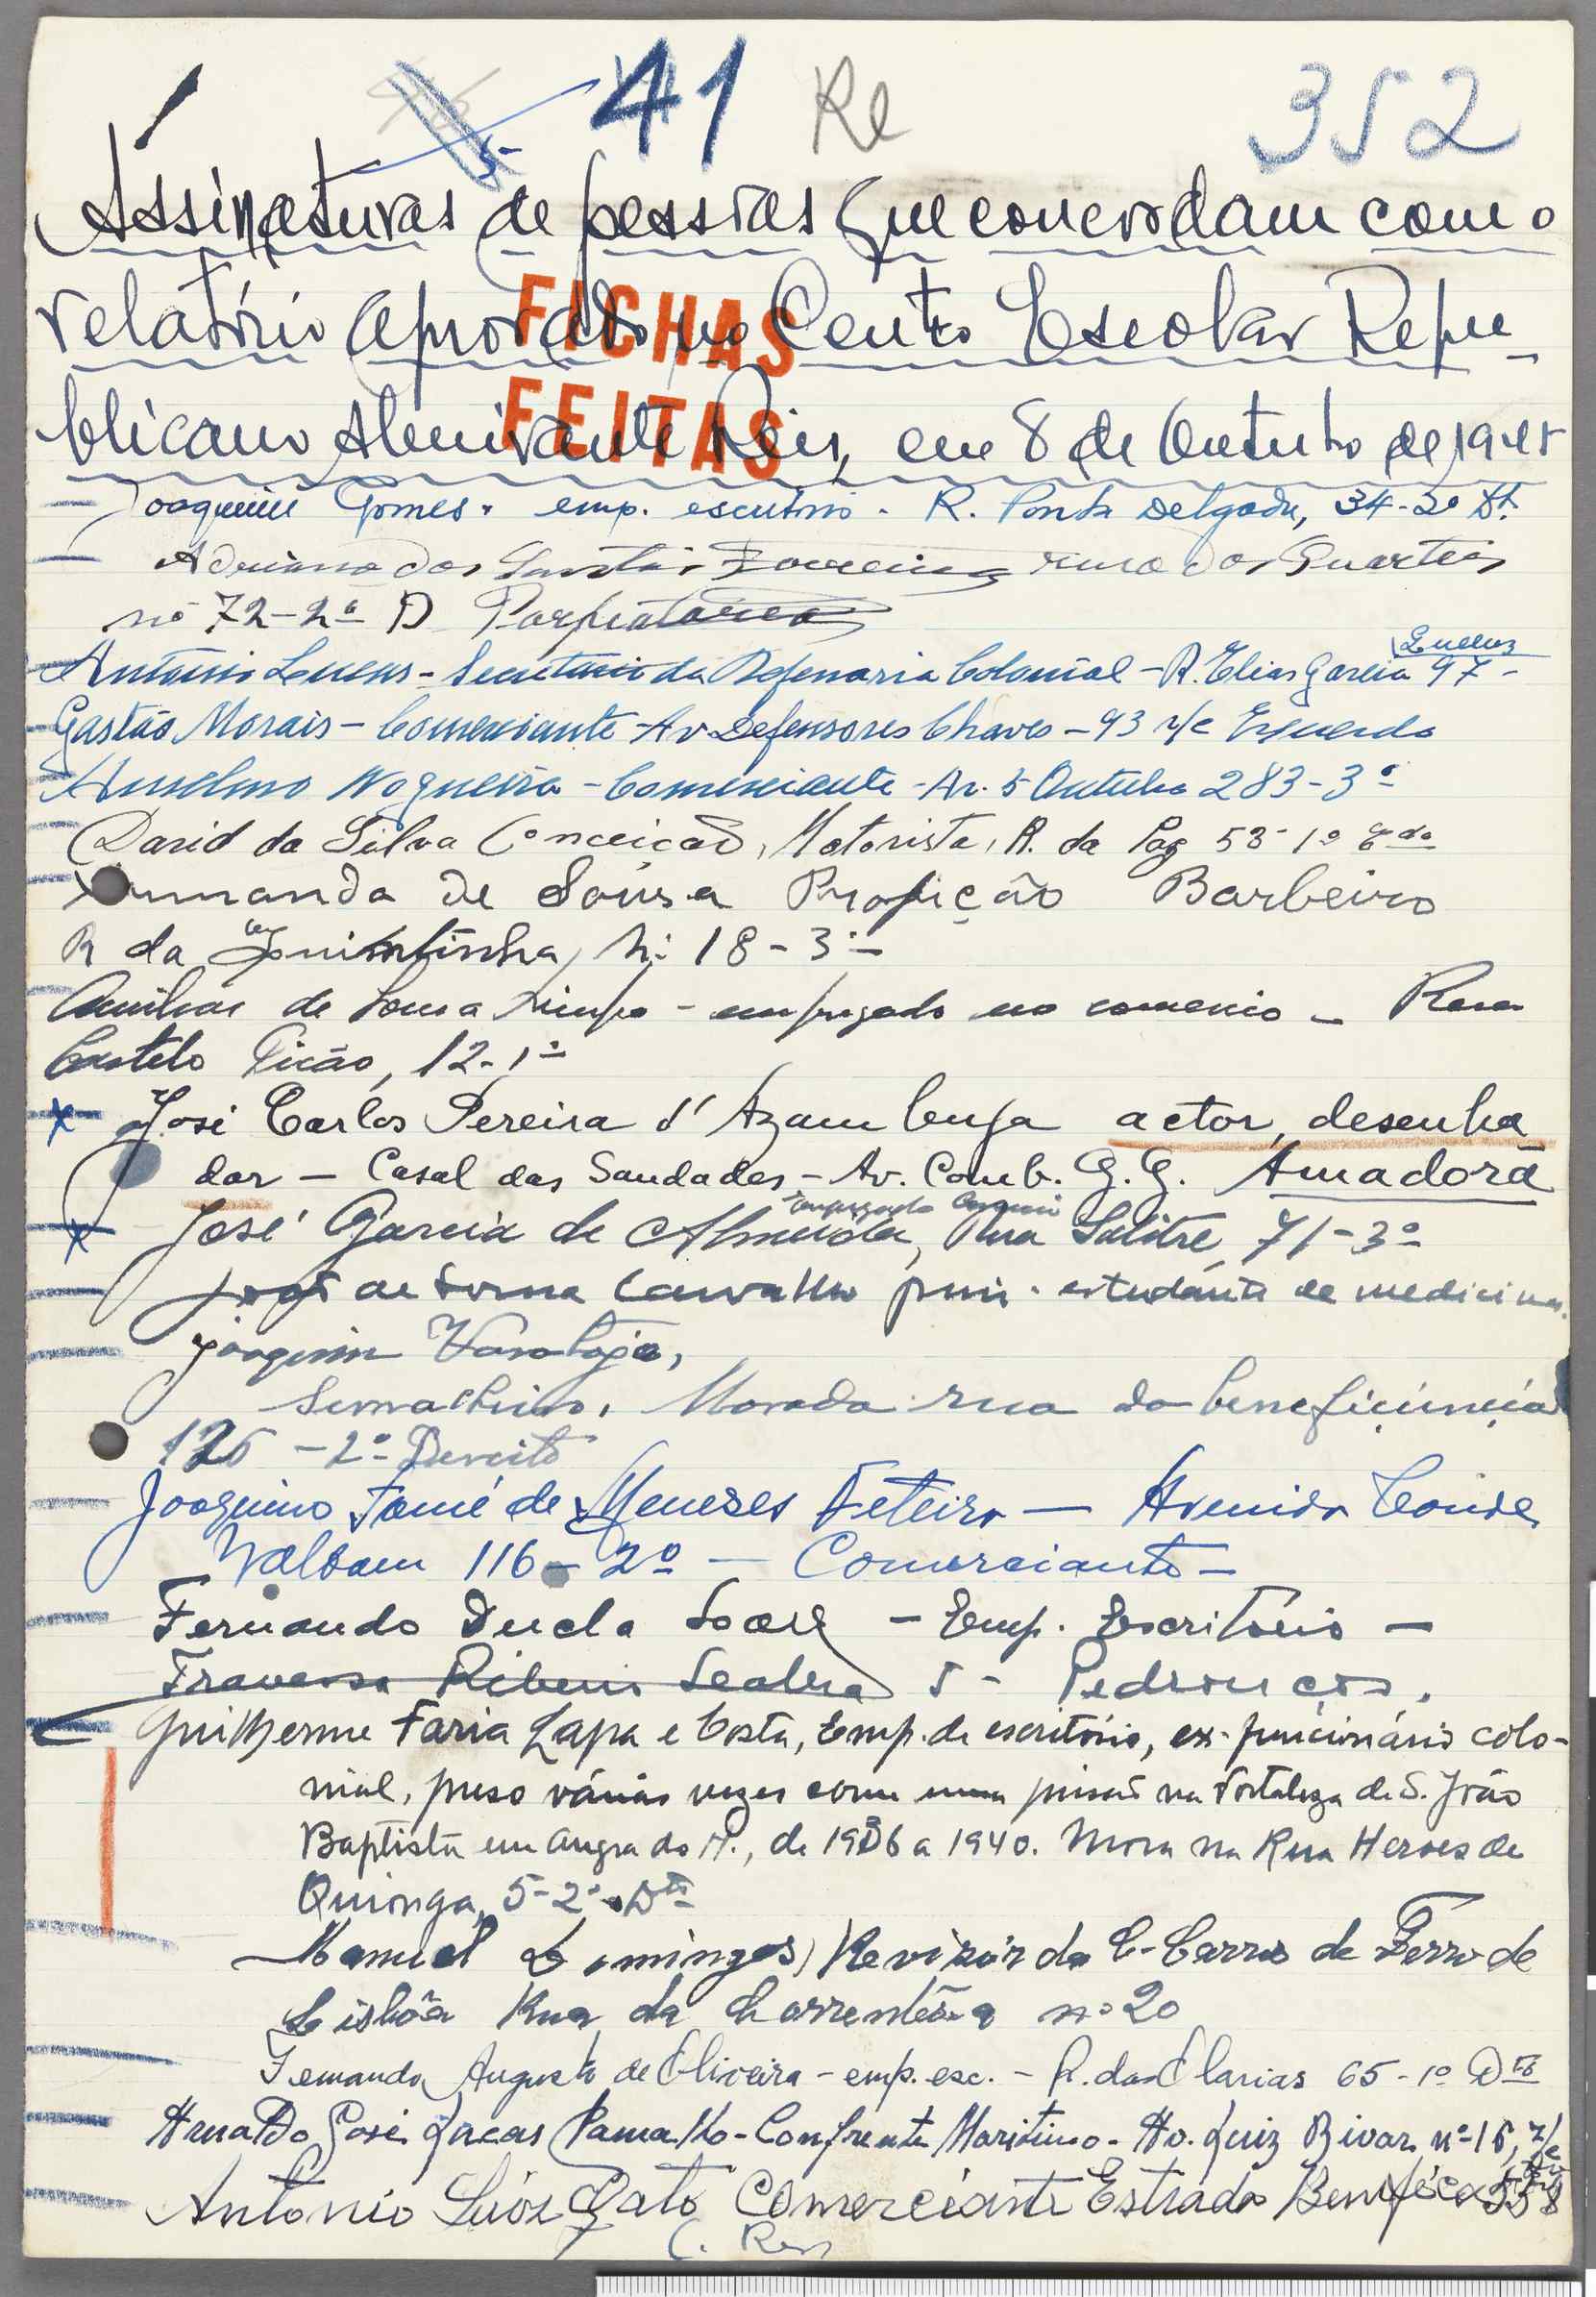 41 Re 352
5-
Assinaturas de pessoas que concordam com o
relatório aprovado no Centro Escolar Repu-
blicano Almirante Reis, em 8 de Outubro de 1945
FICHAS
FEITAS
Joaquim Gomes - emp. escritório - R. Ponta Delgada, 34-2º Dt.
Adriano dos Santos rua dos Quarteis
nº 72-2º D
António Lucas - Secretario da Refinaria Colonial - R. Elias Garcia 97 -
Queluz
Gastão Morais - Comerciante - Av Defensores Chaves - 93 r/c Esquerdo
Anselmo Nogueira - Comerciante - Av. 5 Outubro 283-3º
David da Silva Conceição, Motorista, R. da Paz 53-1º Edo
de Sousa Profição Barbeiro
R da Quintinha, N: 18-3º
de Sousa - empregado no comercio - Rua
Castelo Picão, 12-1º
José Carlos Pereira d'Azambuja actor, desenha
dor - Casal das Saudades - Av. Comb. G. G. Amadora
Empregado Comercio
José Garcia de Almeida, Rua Salitre, 71-3º
José de Sousa Carvalho Junior - estudante de medicina.
Joaquim Varatojo,
Serralheiro, Morada rua da beneficiencia
126 - 2º Direito
Joaquim Tomé de Meneses Feteira - Avenida Conde
Valbom 116-2º - Comerciante -
Fernando Ducla Soares - Emp. Escritório -
Travessa Ribeiro Seabra 5 - Pedrouços.
Guilherme Faria Lapa e Costa, Emp. de escritório, ex-funcionário colo-
nial, preso várias vezes com uma prisão na Fortaleza de S. João
Baptista em Angra do H., de 1936 a 1940. Mora na Rua Heroes de
Quionga, 5-2º Dtº
Manuel Domingos, Revizôr da C. Carros de Ferro de
Lisbôa Rua da Correnteza nº 20
Fernando Augusto de Oliveira - emp. esc. - R. das Olarias 65-1º Dto
Arnaldo José Lucas Ramalho - Conferente Maritimo - Av. Luiz Bivar nº 15, r/c
António Luís Gato Comerciante Estrada Benfica 558